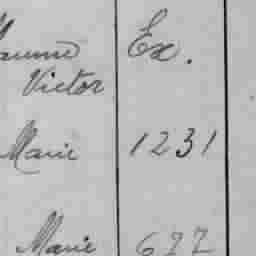 Ex.
Victor
Marie 1231
Marie 677